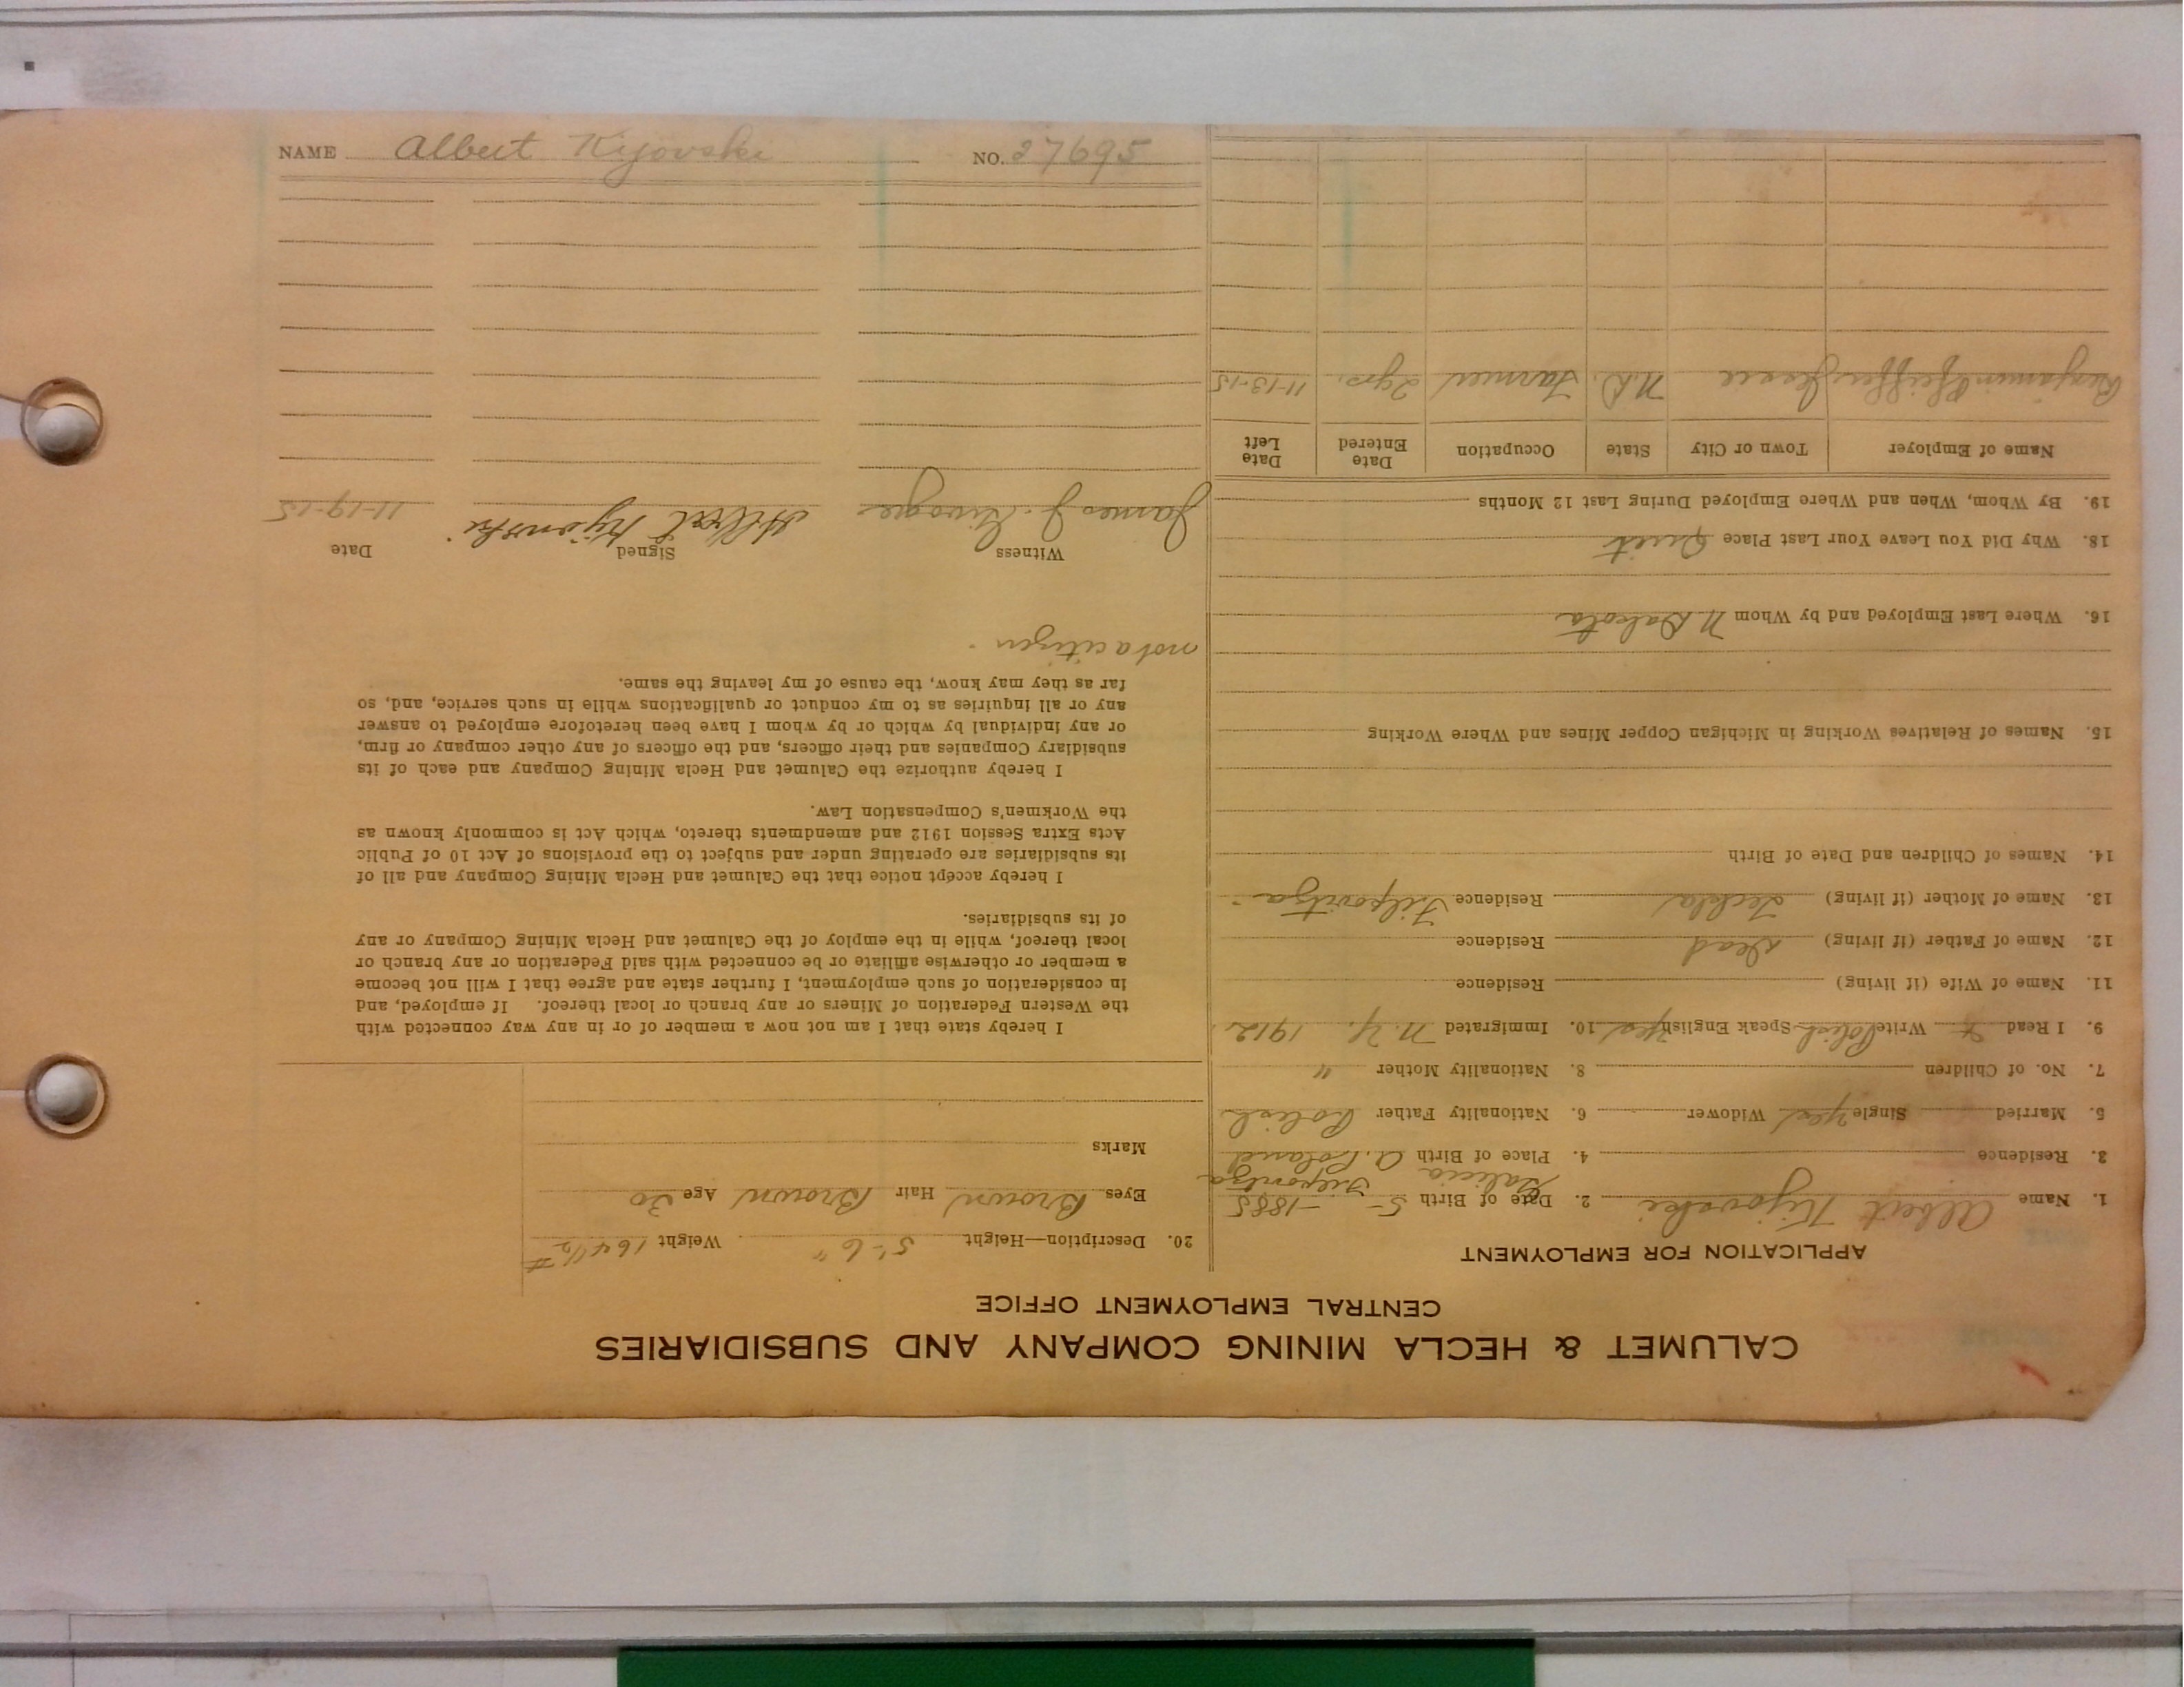 CALUMET & HECLA MINING COMPANY AND SUBSIDIARIES
CENTRAL EMPLOYMENT OFFICE
APPLICATION FOR EMPLOYMENT
1. Name Albert Kijovski 2. Date of Birth 5- -1885
Galicia
3. Residence 4. Place of Birth A. Poland
5. Married Single yes Widower 6. Nationality Father Polish
7. No. of Children 8. Nationality Mother "
9. I Read & Write Polish Speak English yes 10. Immigrated N.Y. 1912
11. Name of Wife (if living) Residence
12. Name of Father (if living) Dead Residence
13. Name of Mother (if living) Tekla Residence
14. Names of Children and Date of Birth
15. Names of Relatives Working in Michigan Copper Mines and Where Working
16. Where Last Employed and by Whom N. Dakota
18. Why Did You Leave Your Last Place Quit
19. By Whom, When and Where Employed During Last 12 Months
Name of Employer Town or City State Occupation Date Entered Date Left
Benjamin Pfeiffer N.D. Farmer 2 yrs. 11-13-15
20. Description—Height 5'-6" Weight 164 1/2 #
Eyes Brown Hair Brown Age 30
Marks
I hereby state that I am not now a member of or in any way connected with
the Western Federation of Miners or any branch or local thereof. If employed, and
in consideration of such employment, I further state and agree that I will not become
a member or otherwise affiliate or be connected with said Federation or any branch or
local thereof, while in the employ of the Calumet and Hecla Mining Company or any
of its subsidiaries.
I hereby accept notice that the Calumet and Hecla Mining Company and all of
its subsidiaries are operating under and subject to the provisions of Act 10 of Public
Acts Extra Session 1912 and amendments thereto, which Act is commonly known as
the Workmen's Compensation Law.
I hereby authorize the Calumet and Hecla Mining Company and each of its
subsidiary Companies and their officers, and the officers of any other company or firm,
or any individual by which or by whom I have been heretofore employed to answer
any or all inquiries as to my conduct or qualifications while in such service, and, so
far as they may know, the cause of my leaving the same.
not a citizen.
Witness Signed Date
James J. Albert Kijowski 11-19-15
NAME Albert Kijovski NO. 27695